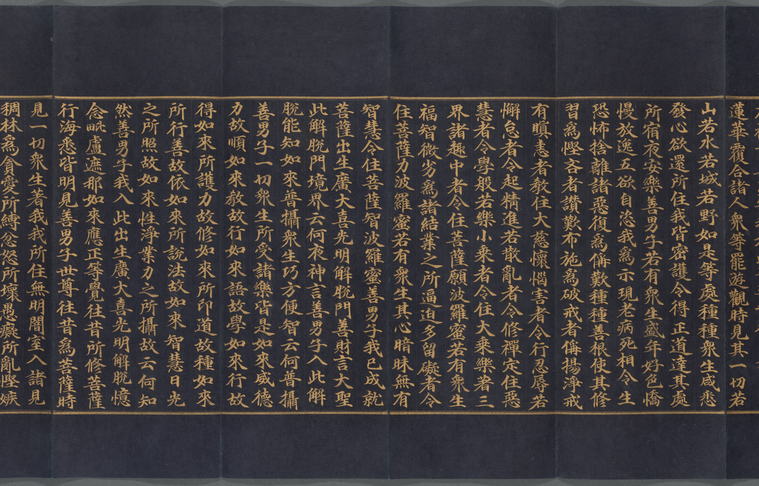 蓮華覆合諸人衆等罷遊觀時見其一切若
山若水若城若野如是等處種種衆生咸悉
發心欲還所住我皆密護令得正道達其處
所宿夜安樂善男子若有衆生盛年好色憍
慢放逸五欲自恣我爲示現老病死相令生
恐怖捨離諸惡復爲偁歎種種善根使其修
習爲慳吝者讚歎布施爲破戒者偁揚淨戒
有瞋恚者教住大慈懷惱害者令行忍辱若
懈怠者令起精進若散亂者令修禪定住惡
慧者令學般若樂小乘者令住大乘樂著三
界諸趣中者令住菩薩願波羅蜜若有衆生
福智微劣爲諸結業之所逼迫多留礙者令
住菩薩力波羅蜜若有衆生其心暗昧無有
智慧令住菩薩智波羅蜜善男子我已成就
菩薩出生廣大喜光明解脫門善財言大聖
此解脫門境界云何夜神言善男子入此解
脫能知如來普攝衆生巧方便智云何普攝
善男子一切衆生所受諸樂皆是如來威德
力故順如來教故行如來語故學如來行故
得如來所護力故修如來所印道故種如來
所行善故依如來所說法故如來智慧日光
之所照故如來性淨業力之所攝故云何知
然善男子我入此出生廣大喜光明解脫憶
念毗盧遮那如來應正等覺往昔所修菩薩
行海悉皆明見善男子世尊往昔爲菩薩時
見一切衆生著我我所住無明闇室入諸見
稠林爲貪愛所縛忿怒所壞愚癡所亂慳嫉